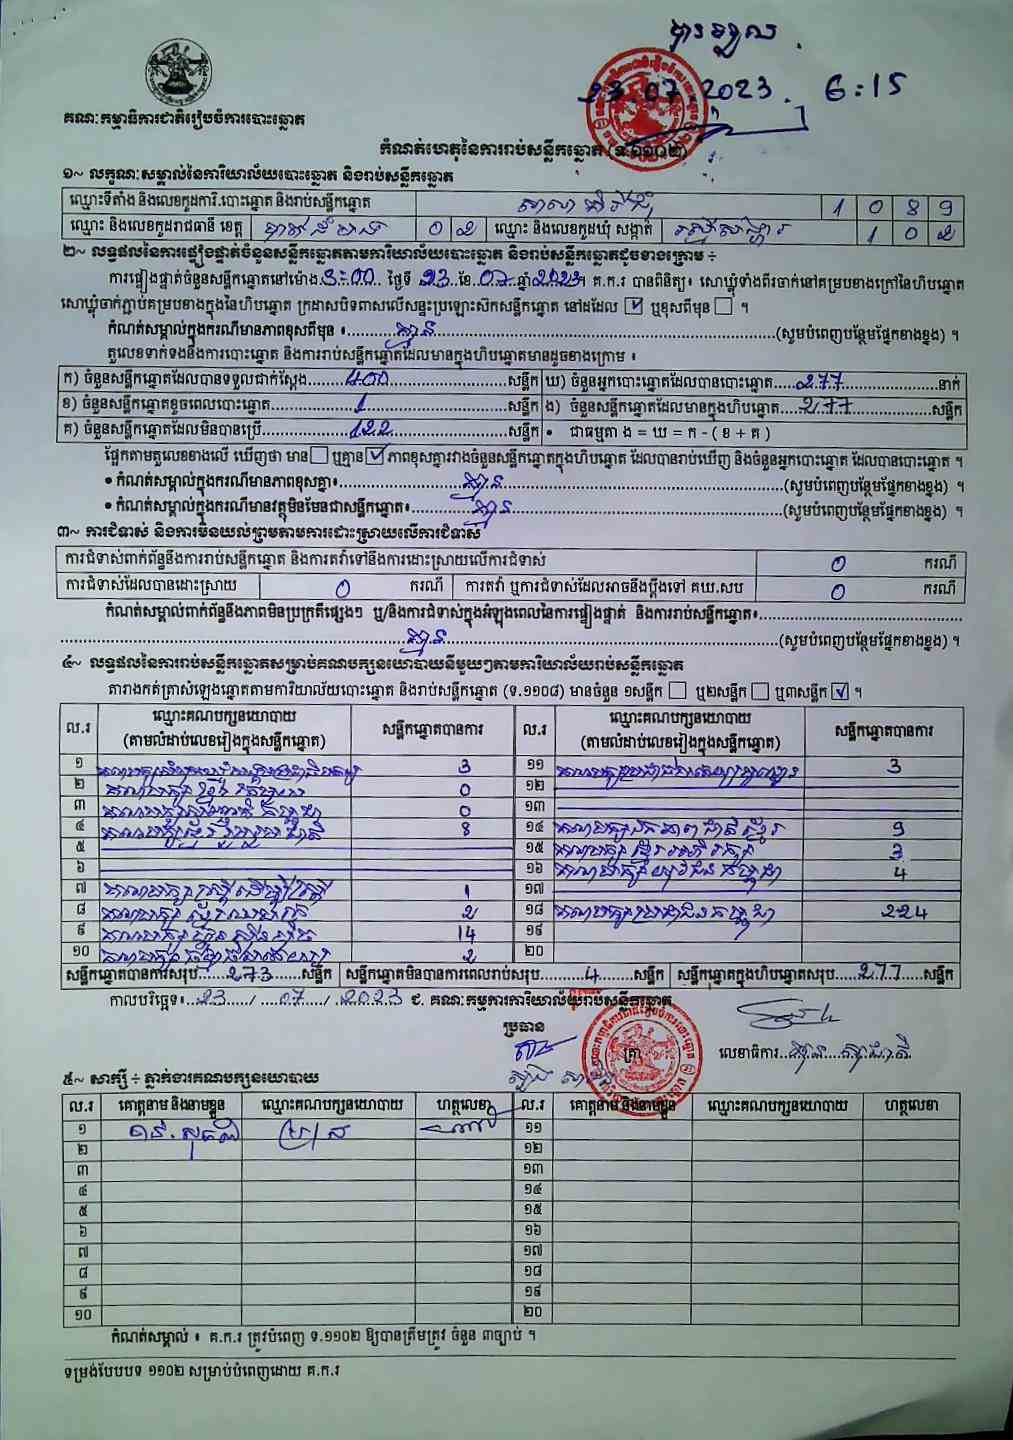 23 07 2023 6:15
គណៈកម្មាធិការជាតិរៀបចំការបោះឆ្នោត
កំណត់ហេតុនៃការរាប់សន្លឹកឆ្នោត (ទ.១១០២)
១~ លក្ខណៈសម្គាល់នៃការិយាល័យបោះឆ្នោត និងរាប់សន្លឹកឆ្នោត
ឈ្មោះទីតាំង និងលេខកូដការិ.បោះឆ្នោត និងរាប់សន្លឹកឆ្នោត 1 0 8 9
ឈ្មោះ និងលេខកូដរាជធានី ខេត្ត 0 ២ ឈ្មោះ និងលេខកូដឃុំ សង្កាត់ 1 0 ២
២~ លទ្ធផលនៃការផ្ទៀងផ្ទាត់ចំនួនសន្លឹកឆ្នោតតាមការិយាល័យបោះឆ្នោត និងរាប់សន្លឹកឆ្នោតដូចខាងក្រោម ÷
ការផ្ទៀងផ្ទាត់ចំនួនសន្លឹកឆ្នោតនៅម៉ោង 3:00 ថ្ងៃទី 23 ខែ 07 ឆ្នាំ 2023 ។ គ.ក.រ បានពិនិត្យ៖ សោឃ្លុំទាំងពីរចាក់នៅគម្របខាងក្រៅនៃហិបឆ្នោត
សោឃ្លុំចាក់ភ្ជាប់គម្របខាងក្នុងនៃហិបឆ្នោត ក្រដាសបិទពាសលើសន្ទះប្រឡោះស៊កសន្លឹកឆ្នោត នៅដដែល ☑ ឬខុសពីមុន ☐ ។
កំណត់សម្គាល់ក្នុងករណីមានភាពខុសពីមុន ៖ គ្មាន (សូមបំពេញបន្ថែមផ្នែកខាងខ្នង) ។
តួលេខទាក់ទងនឹងការបោះឆ្នោត និងការរាប់សន្លឹកឆ្នោតដែលមានក្នុងហិបឆ្នោតមានដូចខាងក្រោម ៖
ក) ចំនួនសន្លឹកឆ្នោតដែលបានទទួលជាក់ស្តែង 400 សន្លឹក ឃ) ចំនួនអ្នកបោះឆ្នោតដែលបានបោះឆ្នោត 277 នាក់
ខ) ចំនួនសន្លឹកឆ្នោតខូចពេលបោះឆ្នោត 1 សន្លឹក ង) ចំនួនសន្លឹកឆ្នោតដែលមានក្នុងហិបឆ្នោត 277 សន្លឹក
គ) ចំនួនសន្លឹកឆ្នោតដែលមិនបានប្រើ 122 សន្លឹក • ជាធម្មតា ង = ឃ = ក - ( ខ + គ )
ផ្អែកតាមតួលេខខាងលើ ឃើញថា មាន ☐ ឬគ្មាន ☑ ភាពខុសគ្នារវាងចំនួនសន្លឹកឆ្នោតក្នុងហិបឆ្នោត ដែលបានរាប់ឃើញ និងចំនួនអ្នកបោះឆ្នោត ដែលបានបោះឆ្នោត ។
• កំណត់សម្គាល់ក្នុងករណីមានភាពខុសគ្នា៖ គ្មាន (សូមបំពេញបន្ថែមផ្នែកខាងខ្នង) ។
• កំណត់សម្គាល់ក្នុងករណីមានវត្ថុមិនមែនជាសន្លឹកឆ្នោត៖ គ្មាន (សូមបំពេញបន្ថែមផ្នែកខាងខ្នង) ។
៣~ ការជំទាស់ និងការមិនយល់ព្រមតាមការដោះស្រាយលើការជំទាស់
ការជំទាស់ពាក់ព័ន្ធនឹងការរាប់សន្លឹកឆ្នោត និងការតវ៉ាទៅនឹងការដោះស្រាយលើការជំទាស់ 0 ករណី
ការជំទាស់ដែលបានដោះស្រាយ 0 ករណី ការតវ៉ា ឬការជំទាស់ដែលអាចនឹងប្តឹងទៅ គឃ.សប 0 ករណី
កំណត់សម្គាល់ពាក់ព័ន្ធនឹងភាពមិនប្រក្រតីផ្សេងៗ ឬ/និងការជំទាស់ក្នុងអំឡុងពេលនៃការផ្ទៀងផ្ទាត់ និងការរាប់សន្លឹកឆ្នោត៖
គ្មាន (សូមបំពេញបន្ថែមផ្នែកខាងខ្នង) ។
៤~ លទ្ធផលនៃការរាប់សន្លឹកឆ្នោតសម្រាប់គណបក្សនយោបាយនីមួយៗតាមការិយាល័យរាប់សន្លឹកឆ្នោត
តារាងកត់ត្រាសំឡេងឆ្នោតតាមការិយាល័យបោះឆ្នោត និងរាប់សន្លឹកឆ្នោត (ទ.១១០៨) មានចំនួន ១សន្លឹក ☐ ឬ២សន្លឹក ☐ ឬ៣សន្លឹក ☑ ។
ល.រ ឈ្មោះគណបក្សនយោបាយ (តាមលំដាប់លេខរៀងក្នុងសន្លឹកឆ្នោត) សន្លឹកឆ្នោតបានការ ល.រ ឈ្មោះគណបក្សនយោបាយ (តាមលំដាប់លេខរៀងក្នុងសន្លឹកឆ្នោត) សន្លឹកឆ្នោតបានការ
១ 3 ១១ 3
២ 0 ១២
៣ 0 ១៣
៤ 8 ១៤ 9
៥ ១៥ 3
៦ ១៦ 4
៧ 1 ១៧
៨ 2 ១៨ គណបក្សប្រជាជនកម្ពុជា 224
៩ 14 ១៩
១០ 2 ២០
សន្លឹកឆ្នោតបានការសរុប 273 សន្លឹក សន្លឹកឆ្នោតមិនបានការពេលរាប់សរុប 4 សន្លឹក សន្លឹកឆ្នោតក្នុងហិបឆ្នោតសរុប 277 សន្លឹក
កាលបរិច្ឆេទ៖ 23 / 07 / 2023 ជ. គណៈកម្មការការិយាល័យរាប់សន្លឹកឆ្នោត
ប្រធាន ត្រា លេខាធិការ
៥~ សាក្សី ÷ ភ្នាក់ងារគណបក្សនយោបាយ
ល.រ គោត្តនាម និងនាមខ្លួន ឈ្មោះគណបក្សនយោបាយ ហត្ថលេខា ល.រ គោត្តនាម និងនាមខ្លួន ឈ្មោះគណបក្សនយោបាយ ហត្ថលេខា
១ ១១
២ ១២
៣ ១៣
៤ ១៤
៥ ១៥
៦ ១៦
៧ ១៧
៨ ១៨
៩ ១៩
១០ ២០
កំណត់សម្គាល់ ៖ គ.ក.រ ត្រូវបំពេញ ទ.១១០២ ឱ្យបានត្រឹមត្រូវ ចំនួន ៣ច្បាប់ ។
ទម្រង់បែបបទ ១១០២ សម្រាប់បំពេញដោយ គ.ក.រ